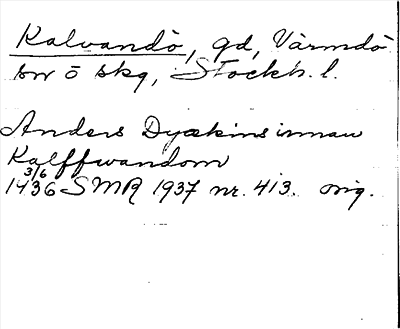 Kalvandö, gd, Värmdö
sn ö skg, Stockh. l.
Anders Dyækins innan
Kalffwandom
3/6
1436 SMR 1937 nr. 413. orig.